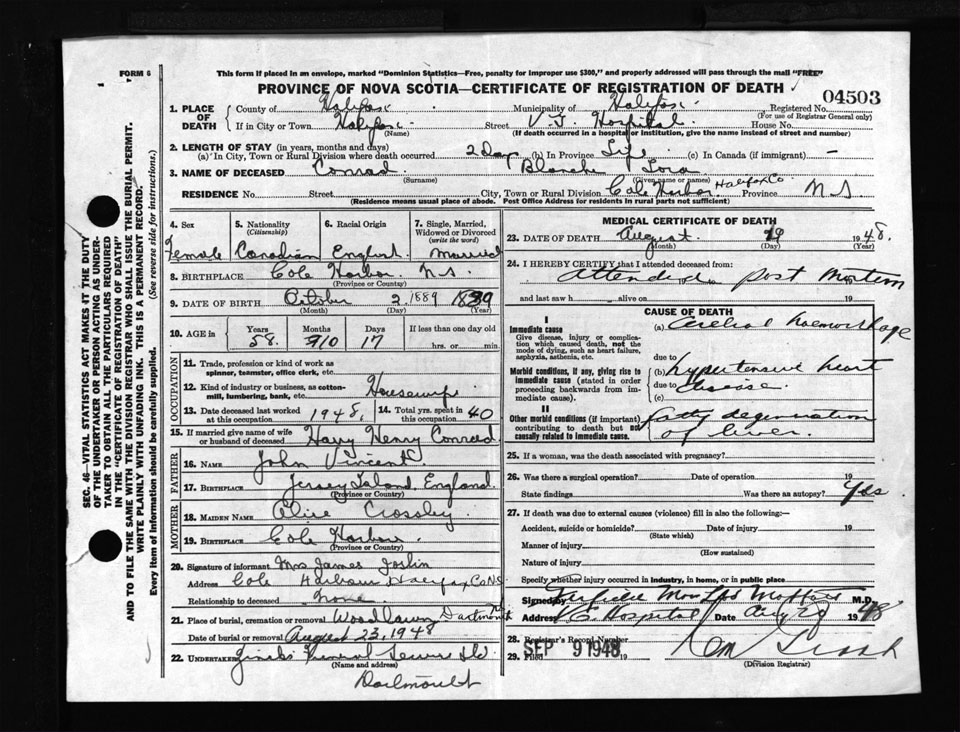 FORM 6
This form if placed in an envelope, marked "Dominion Statistics—Free, penalty for improper use $300," and properly addressed will pass through the mail "FREE"
PROVINCE OF NOVA SCOTIA—CERTIFICATE OF REGISTRATION OF DEATH
04503
1. PLACE OF DEATH
County of Halifax Municipality of Halifax Registered No.
(For use of Registrar General only)
If in City or Town Halifax Street V.G. Hospital House No.
(Name) (If death occurred in a hospital or institution, give the name instead of street and number)
2. LENGTH OF STAY (in years, months and days)
(a) In City, Town or Rural Division where death occurred 2 Days (b) In Province Life (c) In Canada (if immigrant) —
3. NAME OF DECEASED Conrad Blanche Lora
(Surname) (Given name or names)
RESIDENCE No. Street City, Town or Rural Division Cole Harbor Halifax Co Province N.S
(Residence means usual place of abode. Post Office Address for residents in rural parts not sufficient)
4. Sex 5. Nationality (Citizenship) 6. Racial Origin 7. Single, Married, Widowed or Divorced (write the word)
Female Canadian English married
8. BIRTHPLACE Cole Harbor N.S.
(Province or Country)
9. DATE OF BIRTH October 2 1889 1889
(Month) (Day) (Year)
10. AGE in Years Months Days If less than one day old
58 10 17 hrs. or min.
OCCUPATION
11. Trade, profession or kind of work as spinner, teamster, office clerk, etc.
12. Kind of industry or business, as cotton-mill, lumbering, bank, etc. Housewife
13. Date deceased last worked at this occupation 1948 14. Total yrs. spent in this occupation 40
15. If married give name of wife or husband of deceased Harry Henry Conrad
FATHER
16. NAME John Vincent
17. BIRTHPLACE Jersey Island England
(Province or Country)
MOTHER
18. MAIDEN NAME Alice Crossley
19. BIRTHPLACE Cole Harbor
(Province or Country)
20. Signature of informant Mrs James Joslin
Address Cole Harbour Halifax Co NS
Relationship to deceased None
21. Place of burial, cremation or removal Woodlawn Dartmouth
Date of burial or removal August 23, 1948
22. UNDERTAKER
(Name and address)
Dartmouth
MEDICAL CERTIFICATE OF DEATH
23. DATE OF DEATH August 19 1948.
(Month) (Day) (Year)
24. I HEREBY CERTIFY that I attended deceased from:
Attended post mortem
19 to 19
and last saw h alive on 19
CAUSE OF DEATH
I
Immediate cause
Give disease, injury or complication which caused death, not the mode of dying, such as heart failure, asphyxia, asthenia, etc.
(a) Cerebral haemorrhage
due to
Morbid conditions, if any, giving rise to immediate cause (stated in order proceeding backwards from immediate cause).
(b) hypertensive heart disease
due to
(c)
II
Other morbid conditions (if important) contributing to death but not causally related to immediate cause.
fatty degeneration of liver.
25. If a woman, was the death associated with pregnancy?
26. Was there a surgical operation? Date of operation 19
State findings Was there an autopsy? Yes
27. If death was due to external causes (violence) fill in also the following:—
Accident, suicide or homicide? Date of injury 19
(State which)
Manner of injury
(How sustained)
Nature of injury
Specify whether injury occurred in industry, in home, or in public place
Signed by M.D.
Address V.G. Hospital Date Aug 20 1948
28. Registrar's Record Number
29. Filed SEP 9 1948 19
(Division Registrar)
SEC. 46—VITAL STATISTICS ACT MAKES IT THE DUTY
OF THE UNDERTAKER OR PERSON ACTING AS UNDER-
TAKER TO OBTAIN ALL THE PARTICULARS REQUIRED
IN THE "CERTIFICATE OF REGISTRATION OF DEATH"
AND TO FILE THE SAME WITH THE DIVISION REGISTRAR WHO SHALL ISSUE THE BURIAL PERMIT.
WRITE PLAINLY WITH UNFADING INK. THIS IS A PERMANENT RECORD.
Every item of Information should be carefully supplied. (See reverse side for instructions.)